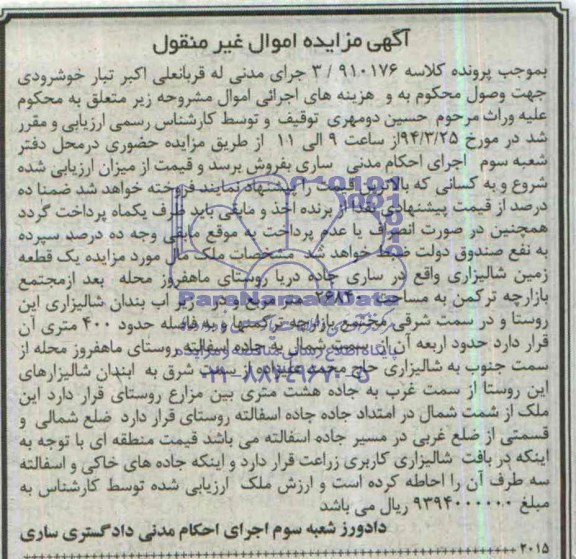 آگهی مزایده اموال غیر منقول
بموجب پرونده کلاسه ۹۱۰۱۷۶ / ۳ جرای مدنی له قربانعلی اکبر تبار خوشرودی
جهت وصول محکوم به و هزینه های اجرائی اموال مشروحه زیر متعلق به محکوم
علیه وراث مرحوم حسین دومهری توقیف و توسط کارشناس رسمی ارزیابی و مقرر
شد در مورخ ۹۴/۳/۲۵از ساعت ۹ الی ۱۱ از طریق مزایده حضوری درمحل دفتر
شعبه سوم اجرای احکام مدنی ساری بفروش برسد و قیمت از میزان ارزیابی شده
شروع و به کسانی که بالاترین قیمت را پیشنهاد نمایند فروخته خواهد شد ضمنا ده
درصد از قیمت پیشنهادی نقدا از برنده اخذ و مابقی باید ظرف یکماه پرداخت گردد
همچنین در صورت انصراف یا عدم پرداخت به موقع مابقی وجه ده درصد سپرده
به نفع صندوق دولت ضبط خواهد شد مشخصات ملک مال مورد مزایده یک قطعه
زمین شالیزاری واقع در ساری جاده دریا روستای ماهفروز محله بعد ازمجتمع
بازارچه ترکمن به مساحت ۲۶۸۴۰ در زیر اب بندان شالیزاری این
روستا و در سمت شرقی مجتمع بازارچه ترکمنها و به فاصله حدود ۴۰۰ متری آن
قرار دارد حدود اربعه آن از سمت شمال به جاده اسفالته روستای ماهفروز محله از
سمت جنوب به شالیزاری حاج محمد علیزاده از سمت شرق به ابندان شالیزارهای
این روستا از سمت غرب به جاده هشت متری بین مزارع روستای قرار دارد این
ملک از شمت شمال در امتداد جاده جاده اسفالته روستای قرار دارد ضلع شمالی و
قسمتی از ضلع غربی در مسیر جاده اسفالته می باشد قیمت منطقه ای با توجه به
اینکه در بافت شالیزاری کاربری زراعت قرار دارد و اینکه جاده های خاکی و اسفالته
سه طرف آن را احاطه کرده است و ارزش ملک ارزیابی شده توسط کارشناس به
مبلغ ۹۳۹۴۰۰۰۰۰۰ ریال می باشد
دادورز شعبه سوم اجرای احکام مدنی دادگستری ساری
۲۰۱۵
ParsNamadData
پایگاه اطلاع رسانی مناقصه و مزایده
۰۲۱-۸۸۳۴۹۶۷۰-۵